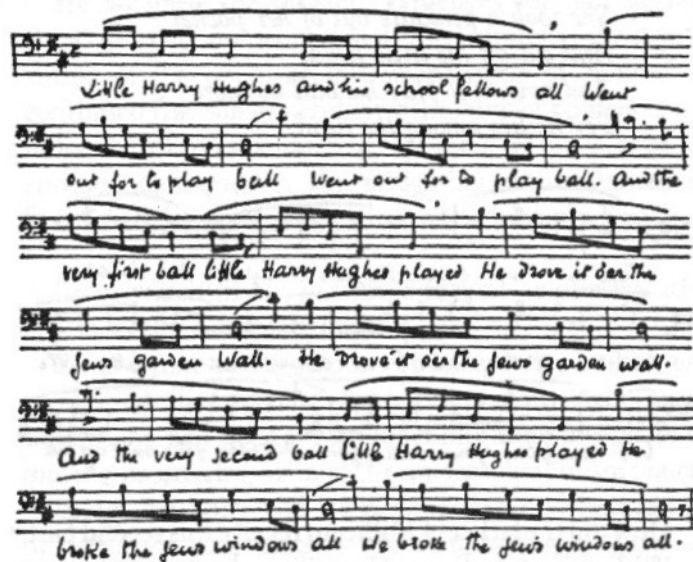 Little Harry Hughes and his school fellows all Went
out for to play ball Went out for to play ball. And the
very first ball little Harry Hughes played He drove it o'er the
Jews garden Wall. He drove it o'er the Jews garden wall.
And the very second ball little Harry Hughes played He
broke the Jews windows all He broke the Jew's windows all.